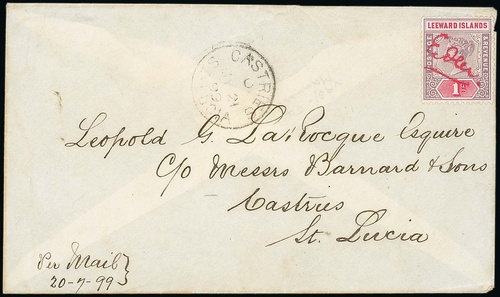 LEEWARD ISLANDS
POSTAGE & REVENUE
1D
CASTRIES
Leopold G. La'Rocque Esquire
C/o Messrs Barnard & Sons
Castries
St. Lucia
Per Mail
20-7-99